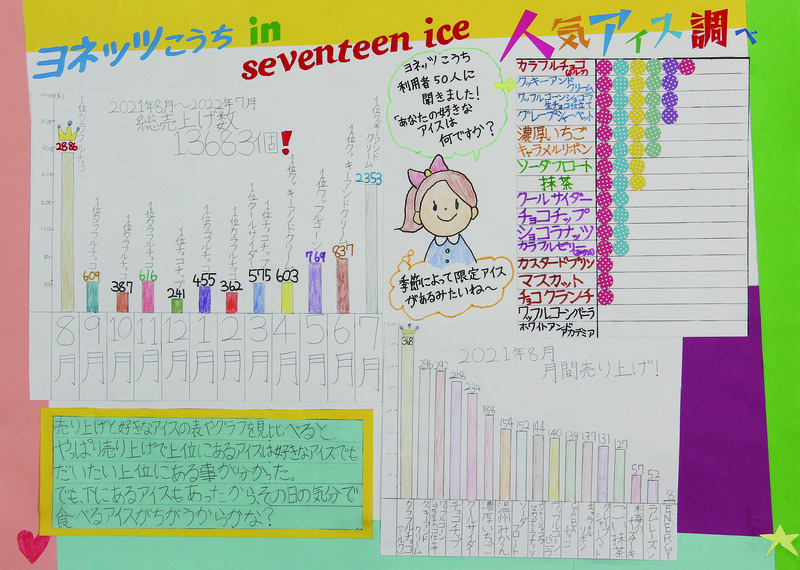 ヨネッツこうち in
seventeen ice
人気アイス調べ
2021年8月〜2022年7月
総売上げ数
13663個!
2886
609
387
616
241
455
362
575
603
769
837
2353
1位カラフルチョコ
1位カラフルチョコ
1位カラフルチョコ
1位チョコチップ
1位クールサイダー
1位チョコチップ
1位クッキーアンドクリーム
1位ワッフルコーン
1位クッキーアンドクリーム
1位クッキーアンドクリーム
8月
9月
10月
11月
12月
1月
2月
3月
4月
5月
6月
7月
ヨネッツこうち
利用者50人に
聞きました!
「あなたの好きな
アイスは
何ですか?」
季節によって限定アイス
があるみたいね〜
カラフルチョコ
クッキーアンド
クリーム
ワッフルコーンショコラ
生チョコ仕立て
グレープシャーベット
濃厚いちご
キャラメルリボン
ソーダフロート
抹茶
クールサイダー
チョコチップ
ショコラナッツ
カラフルゼリー
カスタードプリン
マスカット
チョコクランチ
ワッフルコーンバニラ
ホワイトアンド
アカデミア
2021年8月
月間売り上げ!
368
296
292
268
234
188
154
152
144
140
138
137
131
127
57
52
8
カラフルチョコ
クッキーアンド
クリーム
チョコチップ
クールサイダー
濃厚いちご
温州みかん
ソーダフロート
抹茶
ラムレーズン
ENERGY
売り上げと好きなアイスの表やグラフを見比べると、
やっぱり売り上げで上位にあるアイスは好きなアイスでも
だいたい上位にある事が分かった。
でも下にあるアイスもあったからその日の気分で
食べるアイスがちがうからかな?